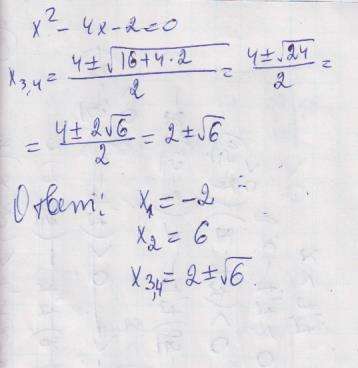 x² - 4x - 2 = 0
x₃,₄ = (4 ± √(16 + 4·2))/2 = (4 ± √24)/2 =
= (4 ± 2√6)/2 = 2 ± √6
Ответ: x₁ = -2
x₂ = 6
x₃,₄ = 2 ± √6.